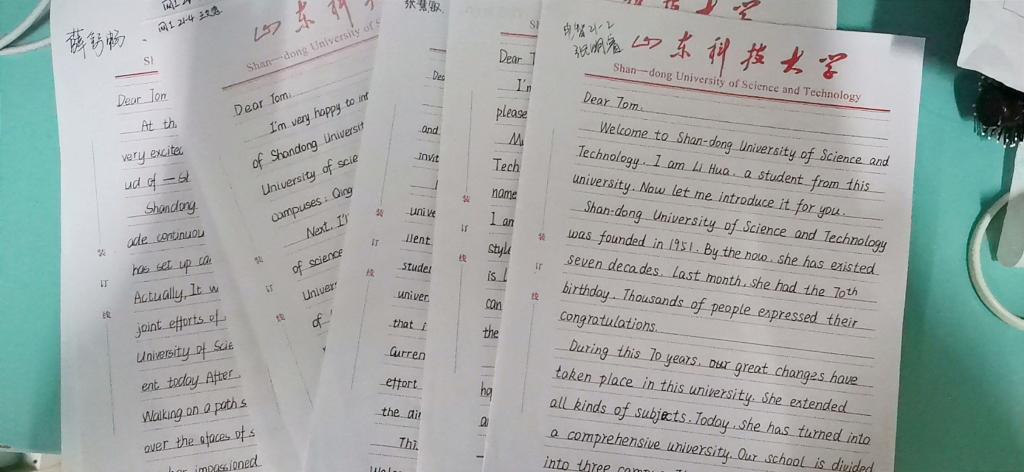 薛舒畅
Dear Tom
At th
very excited
ud of — st
Shandong
ade continuou
has set up ca
Actually, It w
joint efforts of
University of Scie
ent today After
Walking on a path s
over the places of s
her impassioned
装
订
线
山东科技大
Shan—dong University of S
Dear Tom.
I'm very happy to int
of Shandong Universit
University of scie
campuses: Qing
Next, I'l
of science
Univer
of
装
订
线
De
and
invit
unive
llent
studen
univer
that i
Curren
effort
the air
Thi
装
订
线
Dear T
I'm
please
M
Tech
name
I am
style
is l
can
the
ha
装
订
线
科技大学
山东科技大学
Shan—dong University of Science and Technology
Dear Tom,
Welcome to Shan-dong University of Science and
Technology. I am Li Hua, a student from this
university. Now let me introduce it for you.
Shan-dong University of Science and Technology
was founded in 1951. By the now, she has existed
seven decades. Last month, she had the 70th
birthday. Thousands of people expressed their
congratulations.
During this 70 years, our great changes have
taken place in this university. She extended
all kinds of subjects. Today, she has turned into
a comprehensive university. Our school is divided
into three
装
订
线